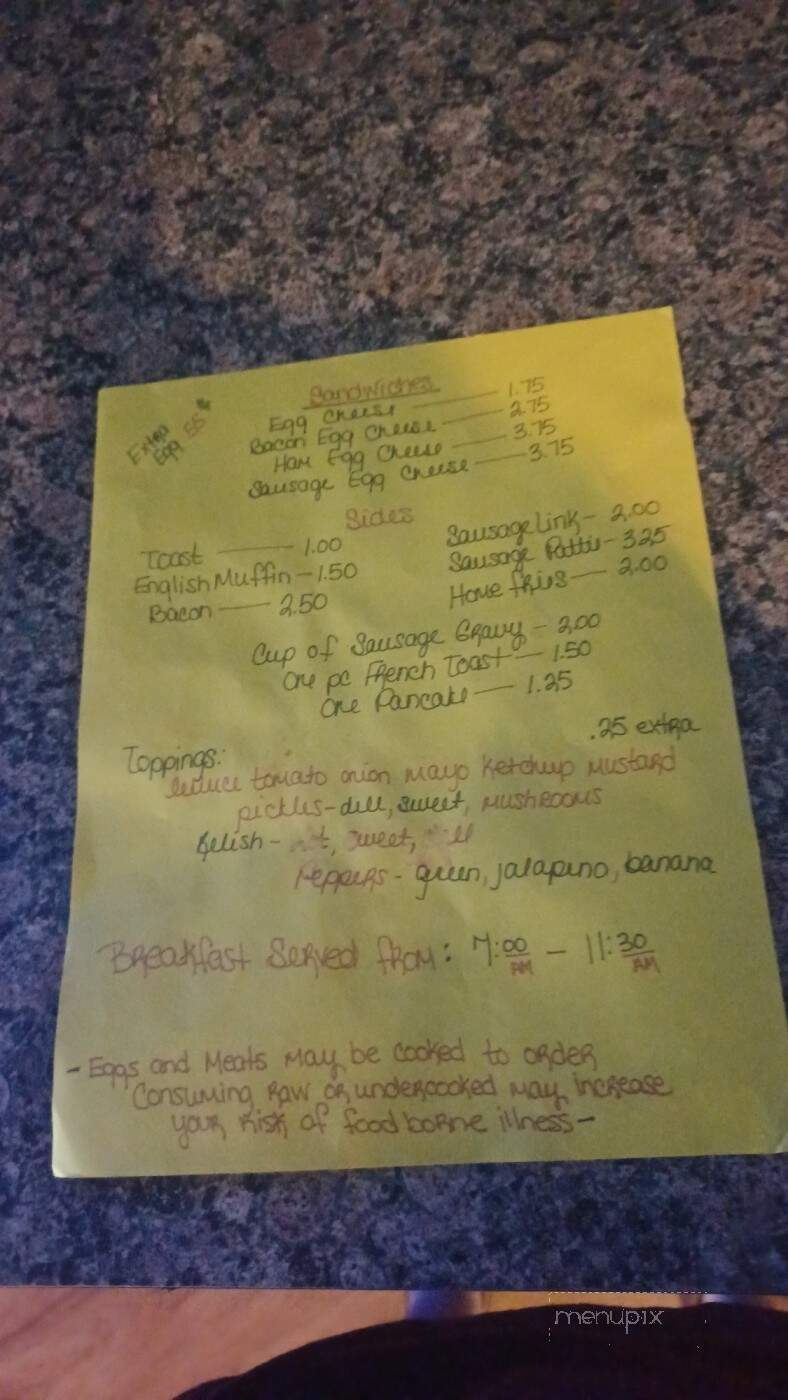 Sandwiches
Extra Egg 55¢
Egg Cheese — 1.75
Bacon Egg Cheese — 2.75
Ham Egg Cheese — 3.75
Sausage Egg Cheese — 3.75
Sides
Toast — 1.00
English Muffin — 1.50
Bacon — 2.50
Sausage Link — 2.00
Sausage Pattie — 3.25
Home fries — 2.00
Cup of Sausage Gravy — 2.00
One pc French Toast — 1.50
One Pancake — 1.25
.25 extra
Toppings:
lettuce tomato onion mayo ketchup mustard
pickles - dill, sweet, mushrooms
Relish - sweet,
Peppers - green, jalapeno, banana
Breakfast Served from: 7:00 AM — 11:30 AM
- Eggs and Meats may be cooked to order
Consuming raw or undercooked may increase
your risk of foodborne illness -
menupix